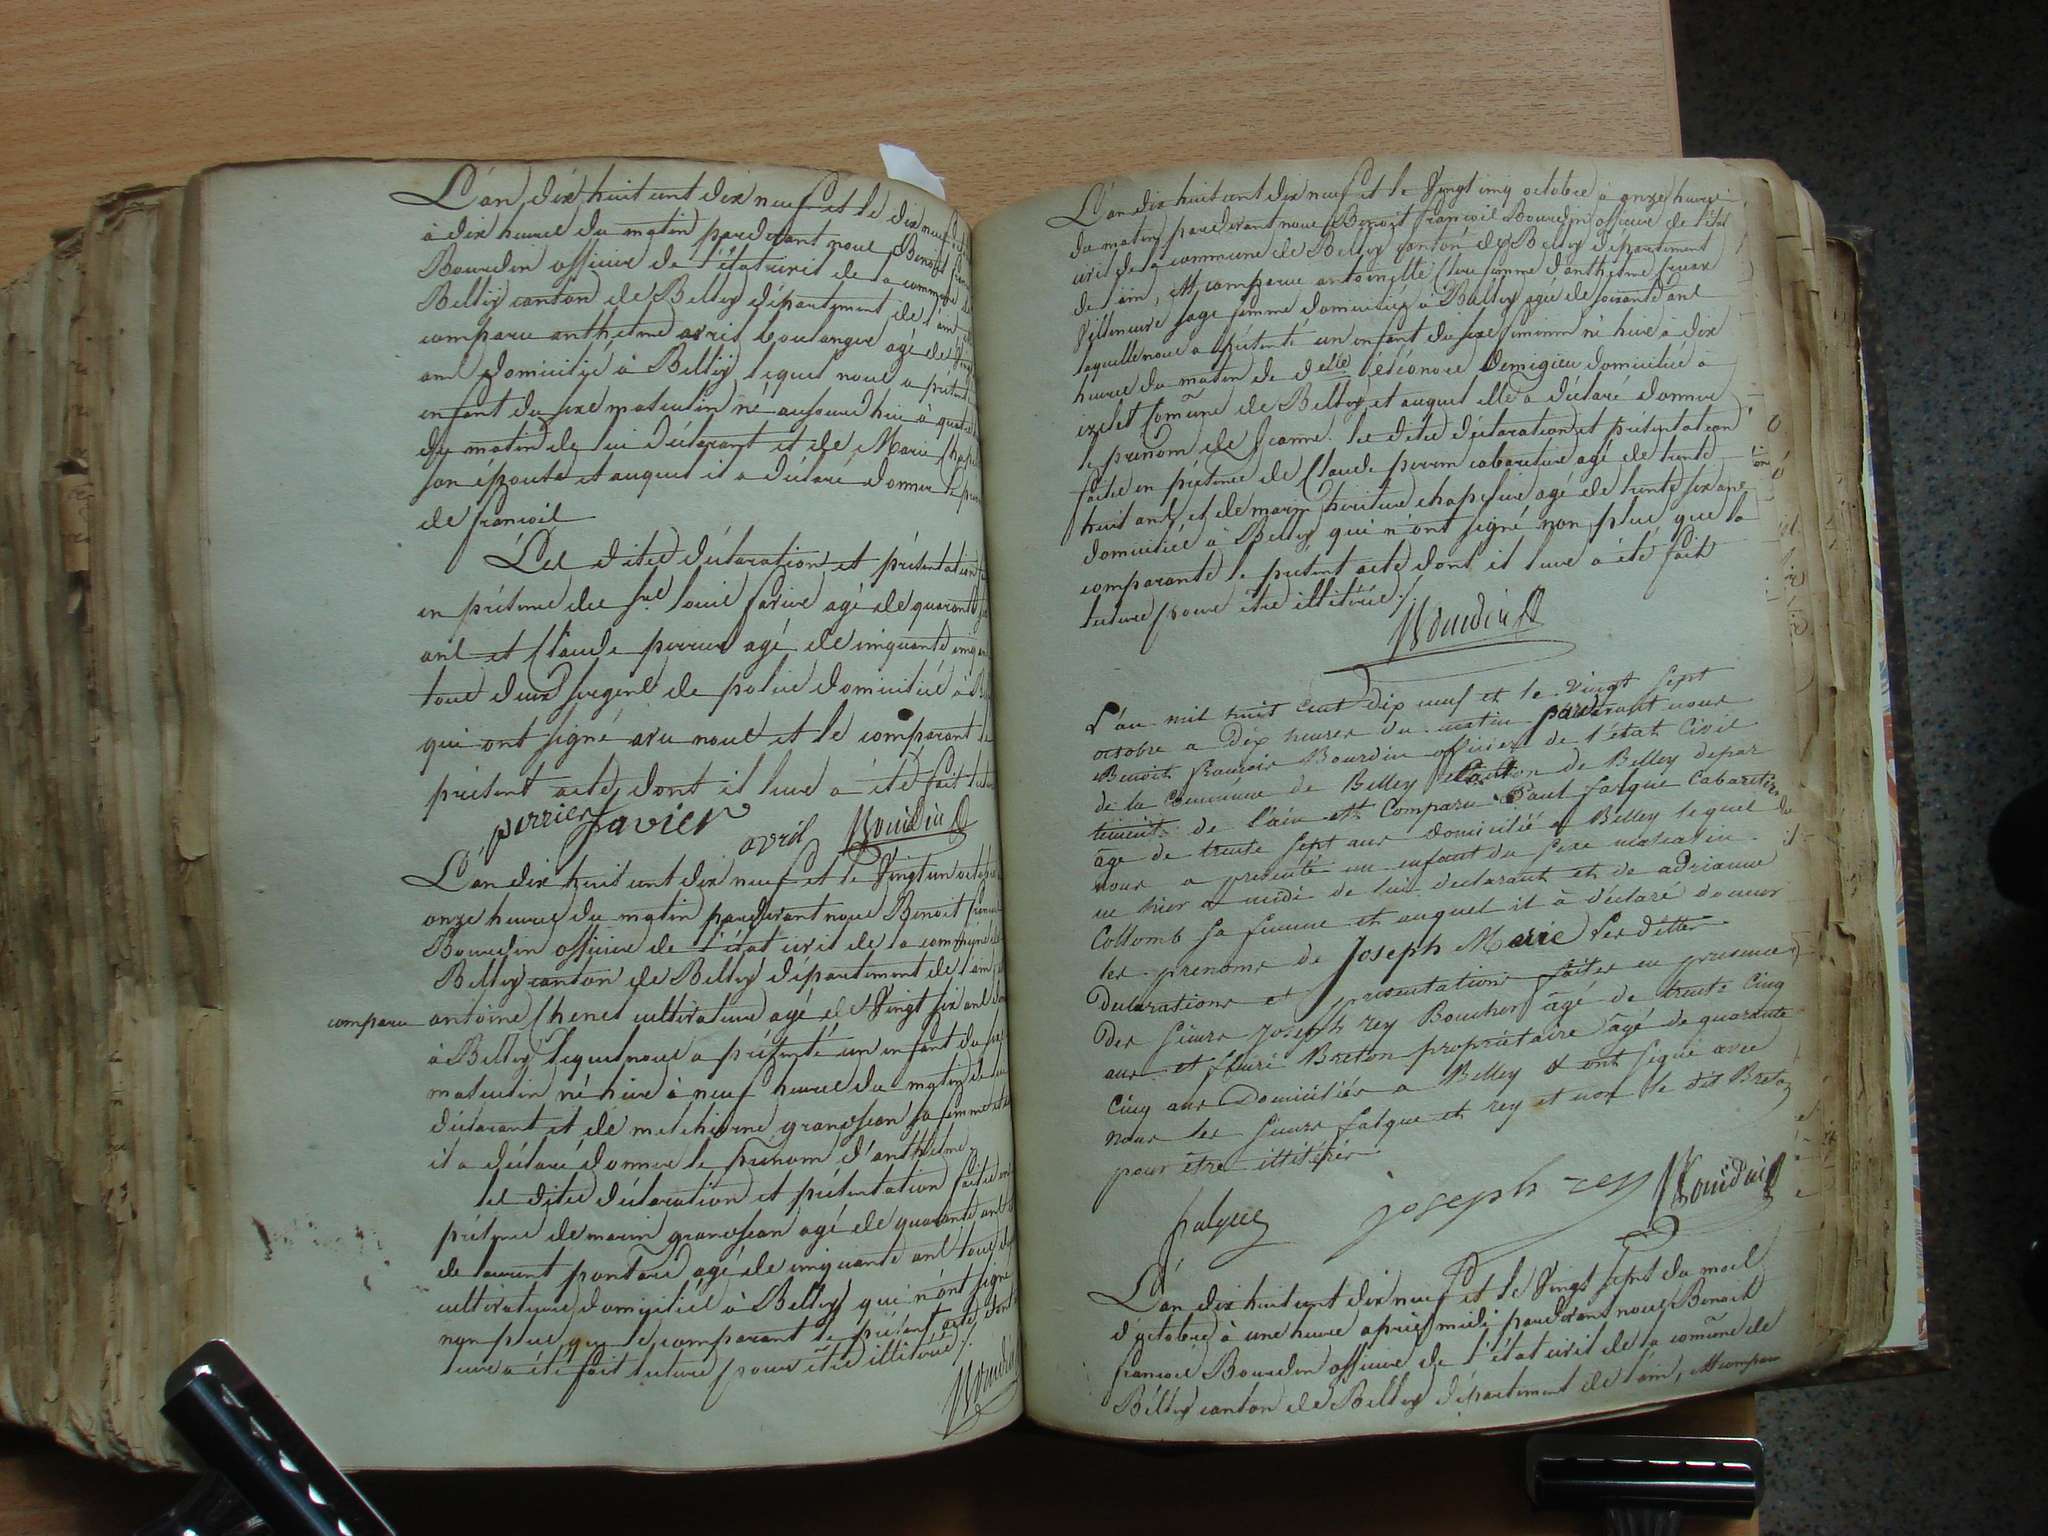 L'an dix huit cent dix neuf et le dix neuf
à dix heures du matin pardevant nous Benoit
Bourdin officier de l'état civil de la commune
Belley canton de Belley département de l'ain
comparu anthelme avril boulanger agé de
ans domicilié à Belley lequel nous a présenté
enfant du sexe masculin né aujourd'hui à quatre
du matin de lui déclarant et de Marie
son épouse et auquel il a déclaré donner le
de françois
Les dites déclaration et présentation
en présence des Srs louis favier agé de quarante
ans et Claude perrier agé de cinquante cinq
tous deux sergens de police domiciliés à
qui ont signé avec nous et le comparant le
présent acte dont il leur a été fait
perrier favier
avril Bourdin
L'an dix huit cent dix neuf et le Vingt un
onze heures du matin pardevant nous Benoit
Bourdin officier de l'état civil de la commune
Belley canton de Belley département de l'ain
comparu antoine Chenet cultivateur agé de Vingt six ans
à Belley lequel nous a présenté un enfant du
masculin né hier à neuf heures du matin de
déclarant et de melchiorne grandjean sa femme
il a déclaré donner le prénom d'anthelme
les dites déclaration et présentation faites en
présence de marin grandjean agé de quarante ans
de laurent agé de cinquante ans tous
cultivateurs domiciliés à Belley qui n'ont signé
non plus que le comparant le présent acte dont
leur a été fait lecture pour être illitérés
Bourdin
L'an dix huit cent dix neuf et le Vingt cinq octobre à onze heures
du matin pardevant nous Benoit françois Bourdin officier de l'état
civil de la commune de Belley canton de Belley département
de l'ain, est comparue antoinette femme d'anthelme
Villeneuve sage femme domiciliée à Belley agée de soixante ans
laquelle nous a présenté un enfant du sexe féminin né hier à dix
heures du matin de delle éléonore Demigieu domiciliée à
commune de Belley et auquel elle a déclaré donner
le prénom de Jeanne. les dites déclaration et présentation
faites en présence de Claude perrin cabaretier agé de trente
huit ans et de marin chapelier agé de trente six ans
domiciliés à Belley qui n'ont signé non plus que la
comparante le présent acte dont il leur a été fait
lecture pour être illitérés
Bourdin
L'an mil huit cent dix neuf et le vingt sept
octobre a dix heures du matin pardevant nous
Benoit françois Bourdin officier de l'état civil
de la commune de Belley canton de Belley depar
tement de l'ain est comparu Paul falque cabaretier
age de trente sept ans domicilié a Belley lequel
nous a presenté un enfant du sexe masculin
né hier a midi de lui declarant et de adrianne
Collomb sa femme et auquel il à déclaré donner
les prenoms de Joseph Marie les dittes
declarations et presentations faites en presence
des sieurs joseph rey Boucher âgé de trente cinq
ans et fleuri Breton propriétaire âgé de quarante
cinq ans domiciliés a Belley & ont signé avec
nous les sieurs falque et rey et non le dit Breton
pour être illitérés
falque joseph rey Bourdin
L'an dix huit cent dix neuf et le Vingt sept du mois
d'octobre à une heure après midi pardevant nous Benoit
françois Bourdin officier de l'état civil de la comune de
Belley canton de Belley département de l'ain, est comparu